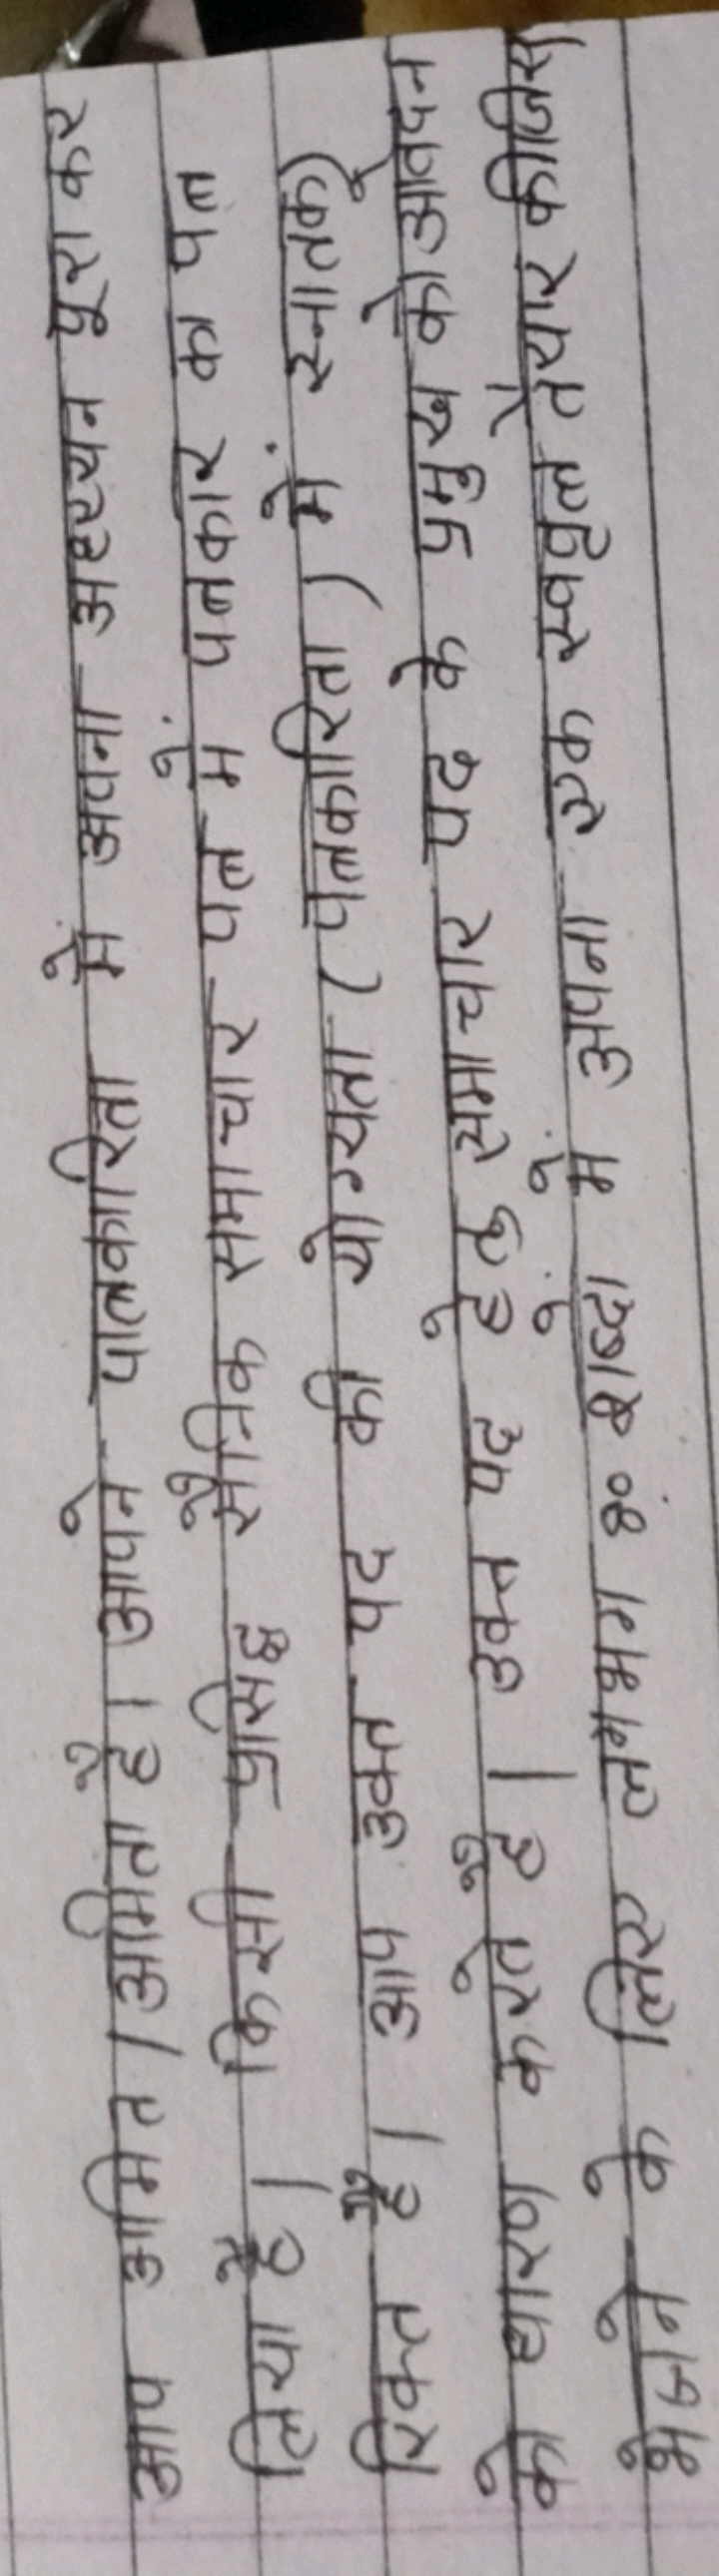 आप अमित / अमिता हैं। आपने पात्रकारिता में अपना अध्ययन पूरा कर
लिया है। किसी प्रसिद्ध समाचार पत्र में पत्रकार का पत्र
रिक्त है। आप उक्त पद की योग्यता (पत्रकारिता) में स्नातक)
को धारण करते हैं। उक्त पद हेतु समाचार पद के प्रमुख को आवेदन
भेजने के लिए लगभग 80 शब्दों में अपना एक स्ववृत्त तैयार कीजिए